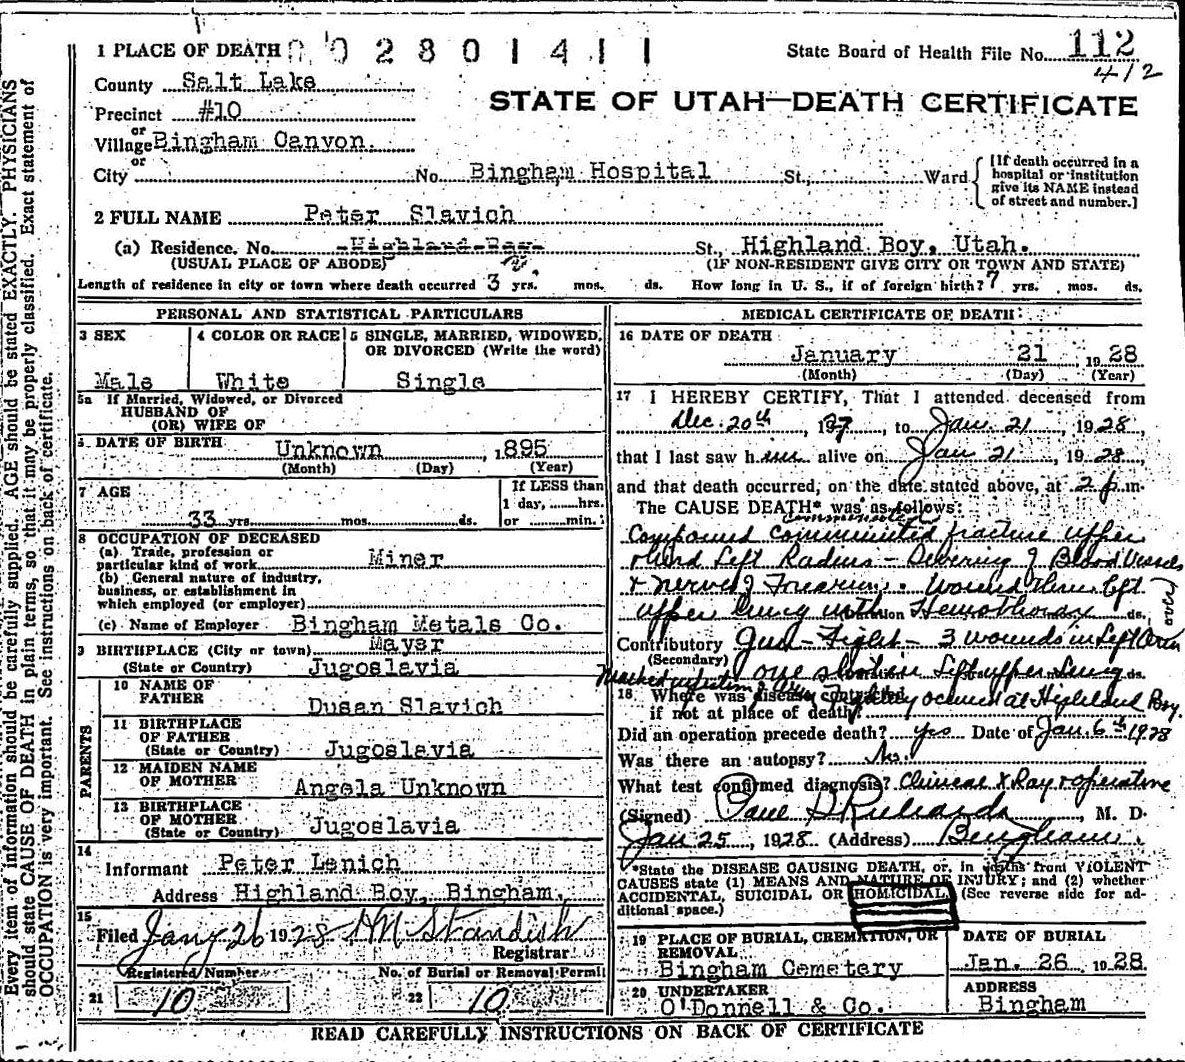 1 PLACE OF DEATH 0 0 2 8 0 1 4 1 1
State Board of Health File No. 112
412
County Salt Lake
STATE OF UTAH—DEATH CERTIFICATE
Precinct #10
or
Village Bingham Canyon.
or
City No. Bingham Hospital St., Ward
[If death occurred in a
hospital or institution
give its NAME instead
of street and number.]
2 FULL NAME Peter Slavich
(a) Residence. No. Highland Boy St., Highland Boy, Utah.
(USUAL PLACE OF ABODE) (IF NON-RESIDENT GIVE CITY OR TOWN AND STATE)
Length of residence in city or town where death occurred 3 yrs. mos. ds. How long in U. S., if of foreign birth? 7 yrs. mos. ds.
PERSONAL AND STATISTICAL PARTICULARS
3 SEX
Male
4 COLOR OR RACE
White
5 SINGLE, MARRIED, WIDOWED,
OR DIVORCED (Write the word)
Single
5a If Married, Widowed, or Divorced
HUSBAND OF
(OR) WIFE OF
6 DATE OF BIRTH Unknown , 1895
(Month) (Day) (Year)
7 AGE
33 yrs. mos. ds.
If LESS than
1 day, hrs.
or min.
8 OCCUPATION OF DECEASED
(a) Trade, profession or
particular kind of work Miner
(b) General nature of industry,
business, or establishment in
which employed (or employer)
(c) Name of Employer Bingham Metals Co.
9 BIRTHPLACE (City or town) Mayar
(State or Country) Jugoslavia
PARENTS
10 NAME OF
FATHER Dusan Slavich
11 BIRTHPLACE
OF FATHER
(State or Country) Jugoslavia
12 MAIDEN NAME
OF MOTHER Angela Unknown
13 BIRTHPLACE
OF MOTHER
(State or Country) Jugoslavia
14
Informant Peter Lenich
Address Highland Boy, Bingham,
15
Filed Jany 26 1928 HM Standish
Registrar
Registered Number
21 10
No. of Burial or Removal Permit
22 10
MEDICAL CERTIFICATE OF DEATH
16 DATE OF DEATH
January 21 , 1928
(Month) (Day) (Year)
17 I HEREBY CERTIFY, That I attended deceased from
Dec. 20th , 1927, to Jan. 21 , 1928,
that I last saw him alive on Jan 21 , 1928,
and that death occurred, on the date stated above, at 2 p m.
The CAUSE DEATH* was as follows:
comminuted
Compound Comminuted fracture upper
third Left Radius – Severing of Blood Vessels
& nerves of Forearm. Wound thru left
upper lung with Duration Hemothorax ds.
over
Contributory Gun-Fight – 3 wounds in Left Arm
(Secondary) one shot in Left upper Lung ds.
Marked infection of
18 Where was disease contracted
if not at place of death? occured at Highland Boy.
Did an operation precede death? yes Date of Jan. 6th 1928
Was there an autopsy? No.
What test confirmed diagnosis? Clinical X Ray & operative
(Signed) Paul S Richards , M. D.
Jan 25 , 1928 (Address) Bingham.
*State the DISEASE CAUSING DEATH, or, in deaths from VIOLENT
CAUSES state (1) MEANS AND NATURE OF INJURY; and (2) whether
ACCIDENTAL, SUICIDAL OR HOMICIDAL (See reverse side for ad-
ditional space.)
19 PLACE OF BURIAL, CREMATION, OR
REMOVAL
Bingham Cemetery
DATE OF BURIAL
Jan. 26 , 1928.
20 UNDERTAKER
O'Donnell & Co.
ADDRESS
Bingham
READ CAREFULLY INSTRUCTIONS ON BACK OF CERTIFICATE
Every item of information should be carefully supplied. AGE should be stated EXACTLY. PHYSICIANS
should state CAUSE OF DEATH in plain terms, so that it may be properly classified. Exact statement of
OCCUPATION is very important. See instructions on back of certificate.